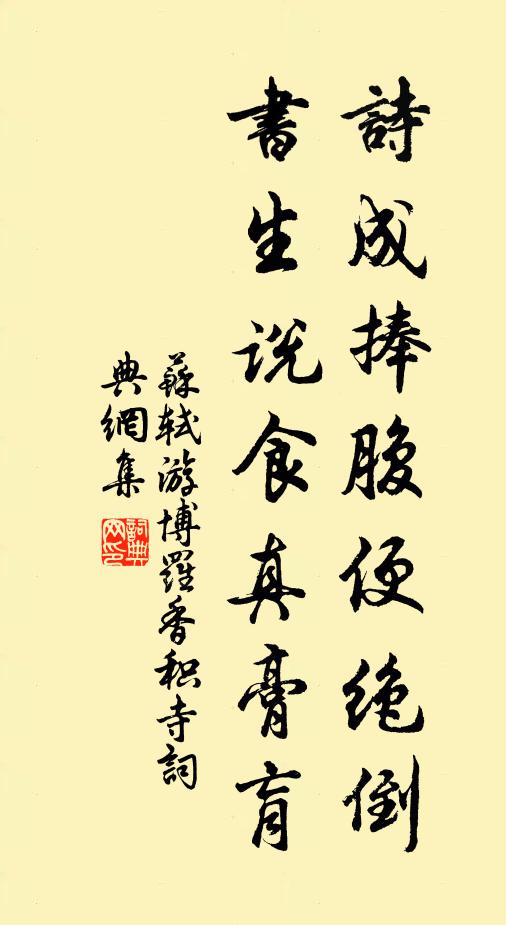 詩成捧腹便絶倒
書生説食真膏肓
蘇軾游博羅香积寺詞
典網集
詞典
网印